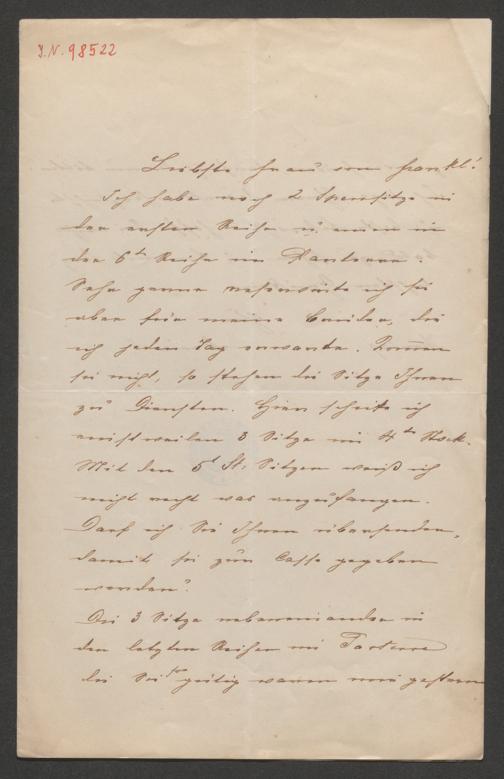 J.N. 98522
Liebste Frau von Frankl!
Ich habe noch 2 Sperrsitze in
der ersten Reihe u einen in
der 6ten Reihe im Parterre
Sehr gerne reservirte ich sie
aber für meine Brüder, die
ich jeden Tag erwarte. Kommen
sie nicht, so stehen die Sitze Ihnen
zu Diensten. Hier schicke ich
einstweilen 3 Sitze im 4ten Stock.
Mit den 5t St. Sitzen weiß ich
nicht recht was anzufangen.
Darf ich Sie Ihnen übersenden,
damit sie zur Casse gegeben
werden?
Die 3 Sitze nebeneinander in
den letzten Reihen im Parterre
die Sie so gütig waren mir gestern